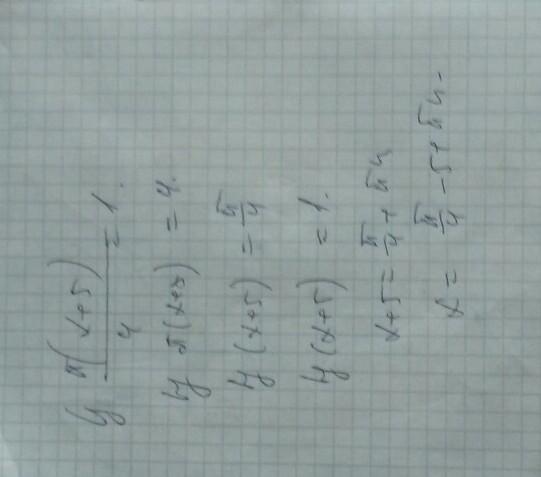 tg π(x+5)/4 = 1.
tg π(x+5) = 4.
tg (x+5) = π/4
tg (x+5) = 1.
x+5 = π/4 + πn
x = π/4 - 5 + πn.